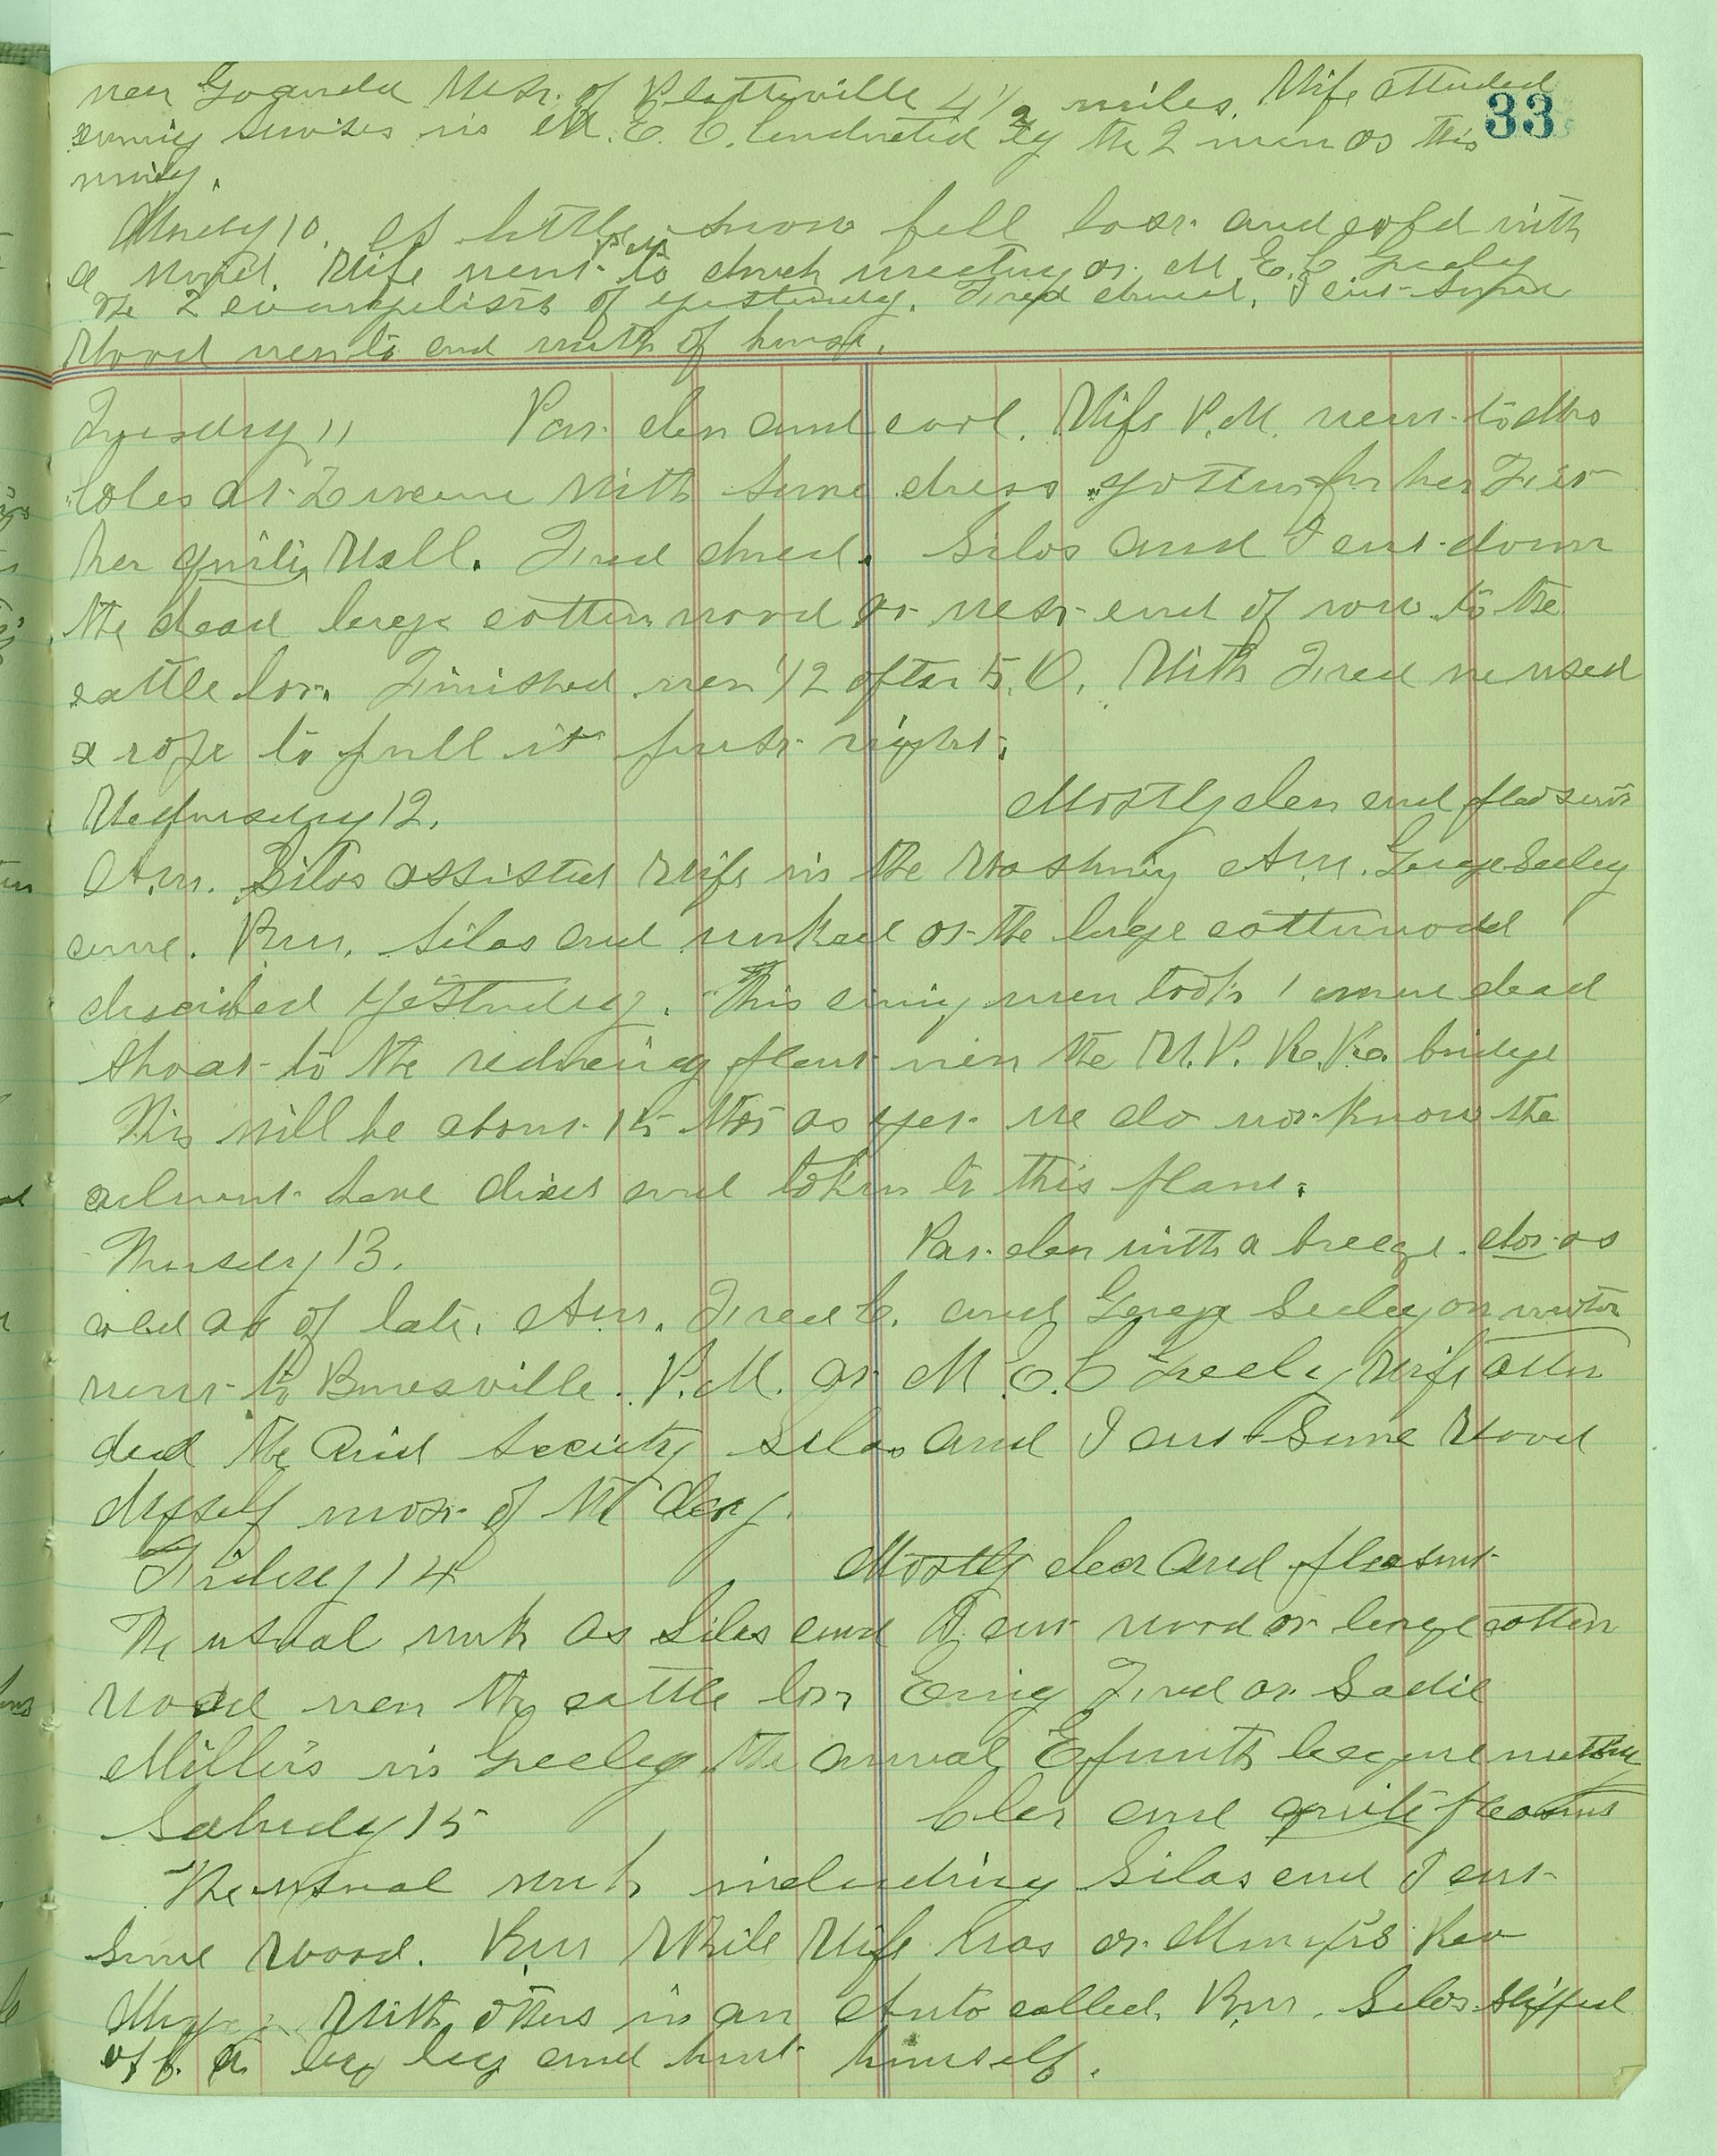 near Gowanda West of Platteville 4 1/2 miles. Wife attended
33
evening services in M. E. C. conducted by the 2 men as this
Monday 10. A little snow fell last and cold with
a wind. Wife went P.M. to church meeting at M E. C Greeley
the 2 evangelists of yesterday. Fred chored. I cut some
Wood next to end north of house.
Tuesday 11 Par clear and cool. Wife P.M. went to Mrs
Coles at with some dress gotten for her Fits
her quite Well. Fred chored. Silas and I cut down
the dead large cottonwood at west end of row to the
cattle lot. Finished near 1/2 after 5.O. With Fred we used
a rope to pull it just right.
Wednesday 12. Mostly clear and pleasant
Am. Silas assisted Wife in the Washing Am. George Seeley
came. P.m. Silas and worked at the large cottonwood
described Yesterday. This evening men took 1 more dead
shoat to the reducing plant near the U.P. R.R. bridge
This will be about 15 that as yet we do not know the
ailment have died and taken to this plant.
Thursday 13. Par. clear with a breeze. not as
cold as of late. Am. Fred C. and George Seeley on motor
went to Barnesville. P.M. at M E. C Greeley Wife atten
ded the Aid Society Silas and I cut Some Wood
Myself most of the day.
Friday 14 Mostly clear and pleasant
The usual work as Silas and I cut wood at large cotton
wood near the cattle lot Evning Fred at Sadie
Miller's in Greeley the annual Epworth league
Saturday 15 Clear and quite pleasant
The usual work including Silas and I cut
Some Wood. P.m While Wife was at Rev
With others in an Auto called. P.m. Silas slipped
off a log and hurt himself.